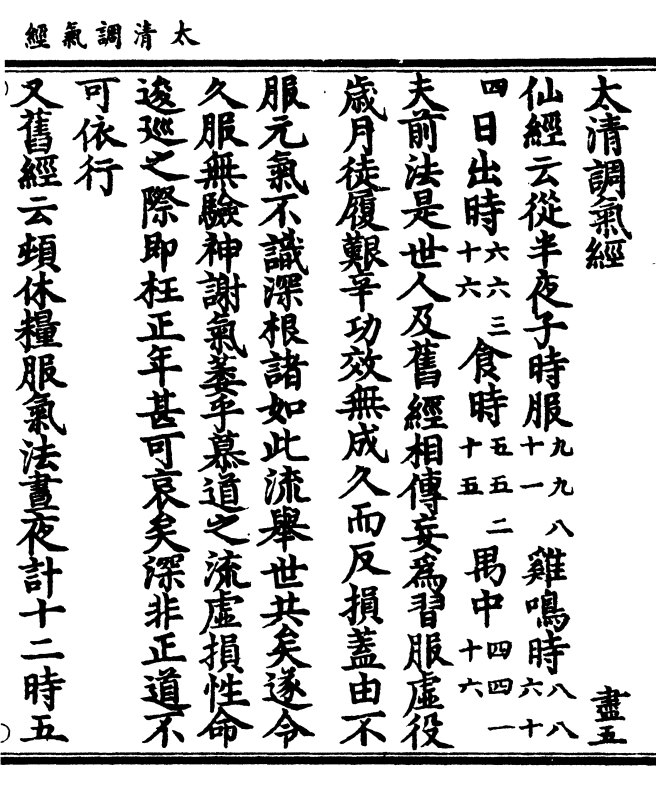 太清調氣經
太清調氣經 盡五
仙經云從半夜子時服九九八十一雞鳴時八八六十
四日出時六六三十六食時五五二十五禺中四四一十六
夫前法是世人及舊經相傳妄爲習服虛役
歲月徒履艱辛功效無成久而反損蓋由不
服元氣不識深根諸如此流舉世共矣遂令
久服無驗神謝氣萎乎慕道之流虛損性命
逡巡之際即枉正年甚可哀矣深非正道不
可依行
又舊經云休糧服氣法晝夜計十二時五